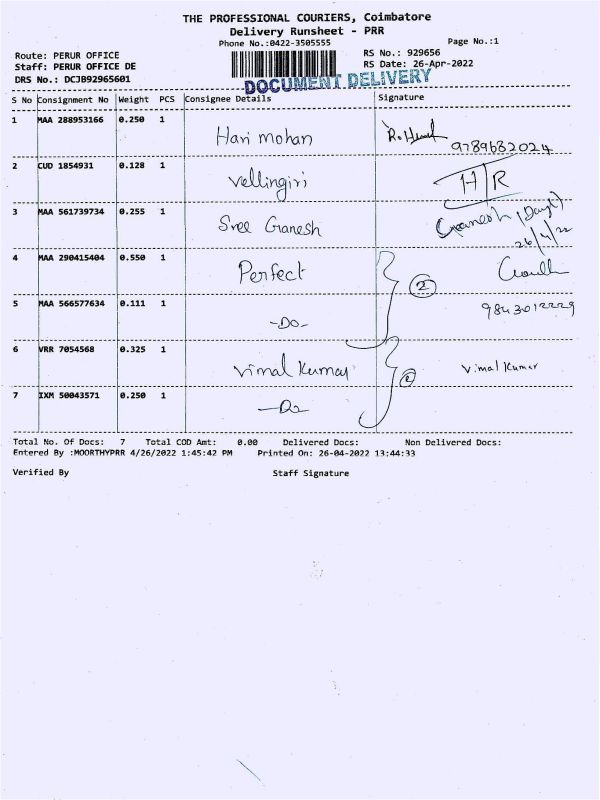 THE PROFESSIONAL COURIERS, Coimbatore
Delivery Runsheet - PRR
Phone No.:0422-3505555
Page No.:1
Route: PERUR OFFICE
RS No.: 929656
Staff: PERUR OFFICE DE
RS Date: 26-Apr-2022
DRS No.: DCJB92965601
DOCUMENT DELIVERY
S No Consignment No Weight PCS Consignee Details Signature
1 MAA 288953166 0.250 1
Hari mohan
9789682024
2 CUD 1854931 0.128 1
Vellingiri H/R
3 MAA 561739734 0.255 1
Sree Ganesh Ganesh
26/4/22
4 MAA 290415404 0.550 1
Perfect
2
5 MAA 566577634 0.111 1
9843012229
-Do-
6 VRR 7054568 0.325 1
Vimal Kumar Vimal Kumar
2
7 IXM 50043571 0.250 1
-Do
Total No. Of Docs: 7 Total COD Amt: 0.00 Delivered Docs: Non Delivered Docs:
Entered By :MOORTHYPRR 4/26/2022 1:45:42 PM Printed On: 26-04-2022 13:44:33
Verified By Staff Signature